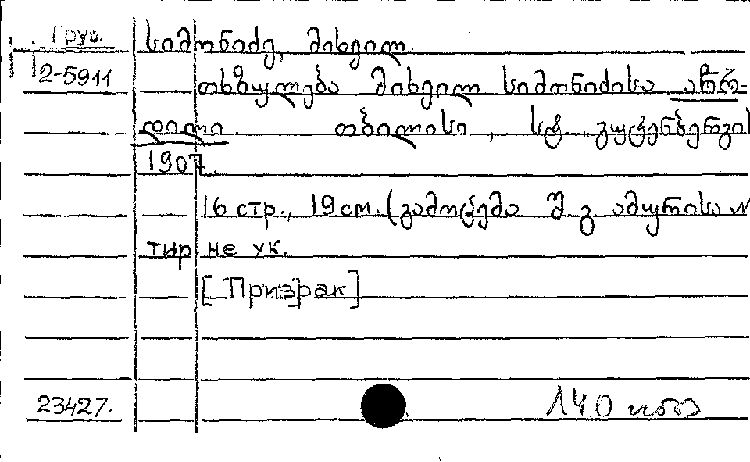 Груз. სიმონიძე, მიხეილ
12-5911 თხზულება მიხეილ სიმონიძისა აჩრ-
დილი. თბილისი, სტ. გუტენბერგის
1907.
16 стр., 19 см. (გამოცემა შ. გ. ამურისა №
тир. не ук.
[Призрак]
23427. 140